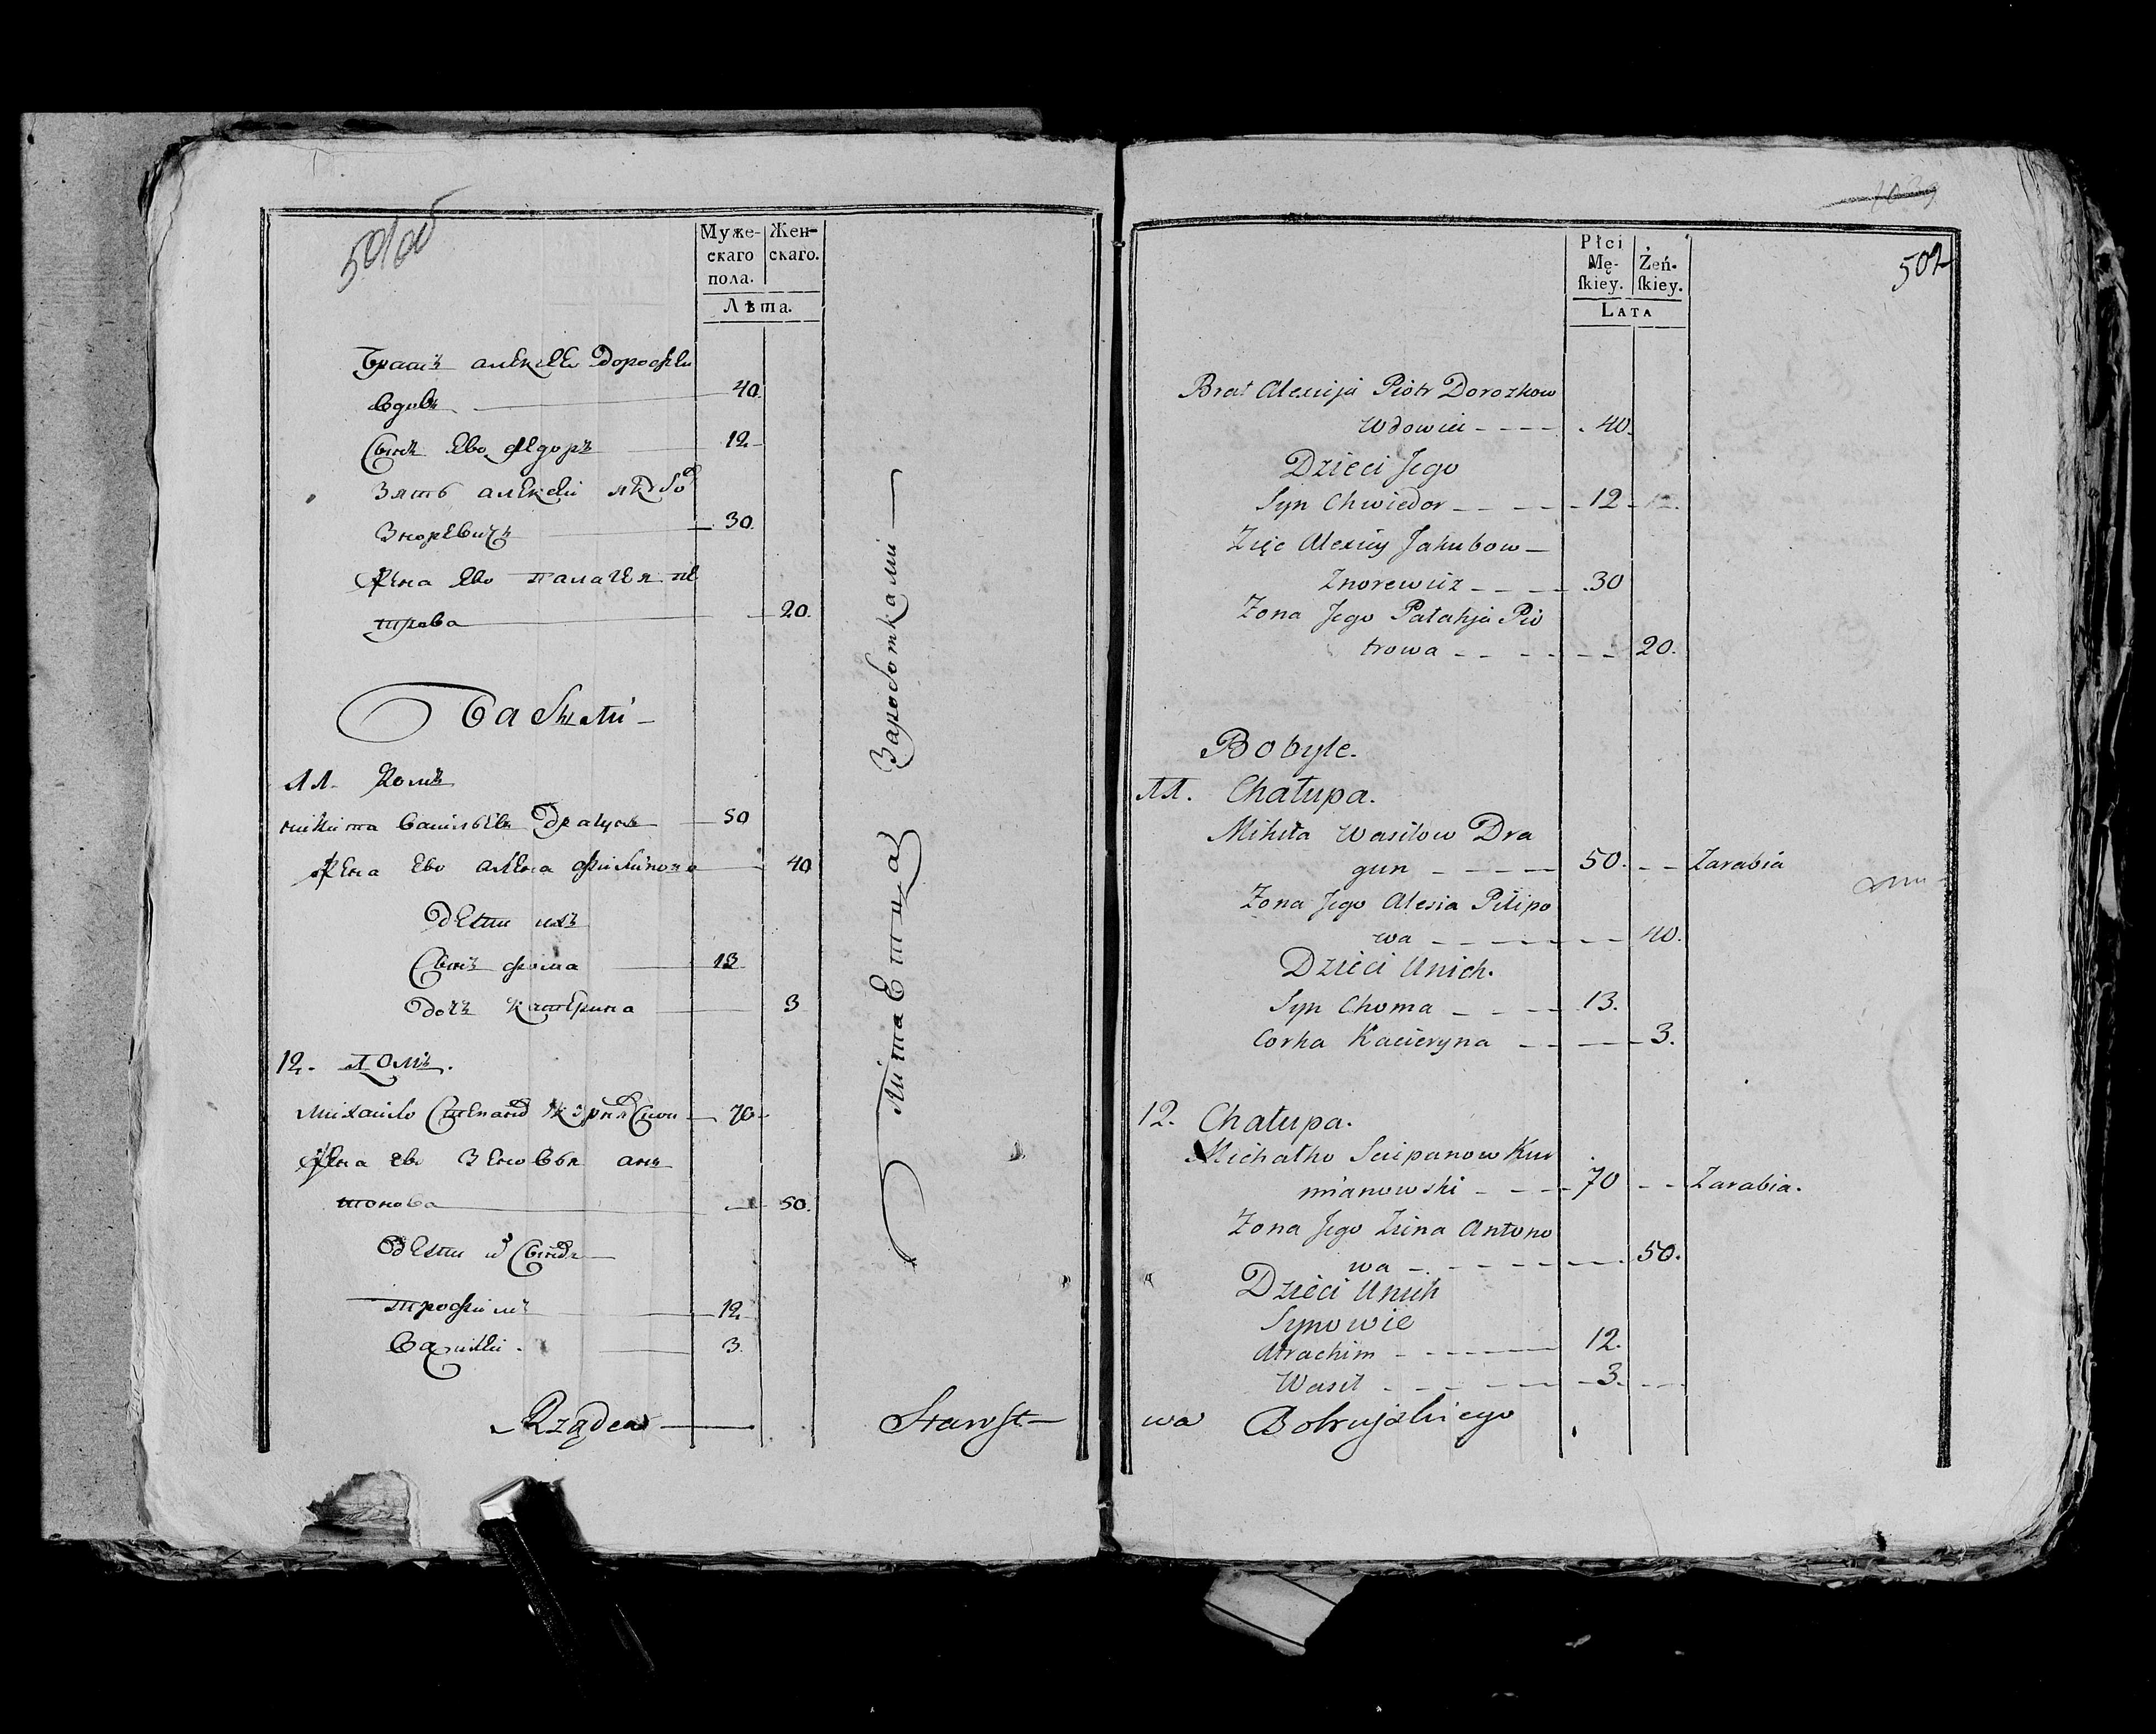 501об
Муже-
скаго
пола.
Жен-
скаго.
Лѣта.
Братъ алексеевъ
вдовъ 40
Сынъ ево Федоръ 12
Зять алексеи якубов
Зноревичъ 30
жена ево палагея пе
трова 20.
11. Домъ
никита васильевъ Драгунъ 50
жена ево алена филипова 40
дети ихъ
Сынъ фома 13
дочъ катерина 3
12. Домъ.
михаило Степанов 70
жена ево Зеновья ан
тонова 50.
дети
трофимъ 12
Василеи. 3.
Питаетца Заработками
Rządca Starost
Płci
Mę-
ſkiey.
Żeń-
ſkiey.
LATA
502
Brat Alexieja Piotr Dorozkow
Wdowiec 40.
Dzieci Jego
Syn Chwiedor 12
Zięc Alexiey Jakubow
Znorewicz 30
Zona Jego Pałahja Pio
trowa 20.
Bobyle.
11. Chałupa.
Mikita Wasilow Dra
gun 50. Zarabia
Zona Jego Alesia Pilipo
wa 40.
Dzieci Unich.
Syn Choma 13.
Corka Kacieryna 3.
12. Chałupa.
Michałko Sciepanow Kur
mianowski 70 Zarabia.
Zona Jego Zina Antono
wa 50.
Dzieci Unich
Synowie
Atrachim 12.
Wasil 3.
wa Bobruyskiego